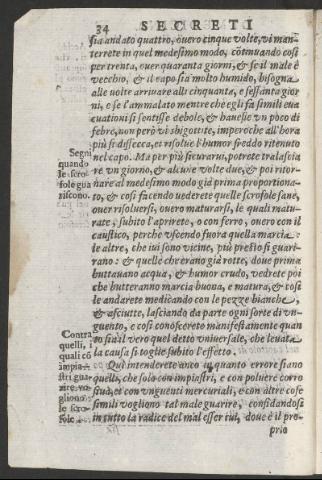 34 SECRETI
sia andato quattro, ouero cinque volte, vi man-
terrete in quel medesimo modo, cōtinuando così
per trenta, ouer quaranta giorni, & se il male è
vecchio, & il capo sia molto humido, bisogna
alle volte arriuare alli cinquanta, e sessanta gior
ni, e se l'ammalato mentre che egli fa simili eua
cuationi si sentisse debole, & hauesse vn poco di
febre, non però vi sbigotite, imperoche all'hora
più si dissecca, et risolue l'humor freddo ritenuto
nel capo. Ma per più sicurarui, potrete tralascia
re vn giorno, & alcune volte due, & poi ritor-
nare al medesimo modo già prima proportiona-
to, & così facendo vederete quelle scrofole sane,
ouer risoluersi, ouero maturarsi, le quali matu-
rate, subito l'aprirete, o con ferro, ouero con il
caustico, perche vscendo fuora quella marcia:
le altre, che iui sono vicine, più presto si guari-
rano: & quelle che erano già rotte, doue prima
buttauano acqua, & humor crudo, vedrete poi
che butteranno marcia buona, e matura, & così
le andarete medicando con le pezze bianche,
& asciutte, lasciando da parte ogni sorte di vn-
guento, e così conoscerete manifestamente quan
to sia il vero quel detto vniuersale, che leuata
la causa si toglie subito l'effetto.
Qui intenderete anco in quanto errore siano
quelli, che solo con impiastri, e con poluere corro
siua, et con vnguenti mercuriali, e con altre cose
simili vogliono tal male guarire, considandosi
in tutto la radice del mal esser iui, doue è il pro-
prio
Segni
quando
le scro-
fole gua
riscono.
Contra
quelli, i
quali cō
impia-
stri gua-
rire vo-
gliono
le scro-
fole